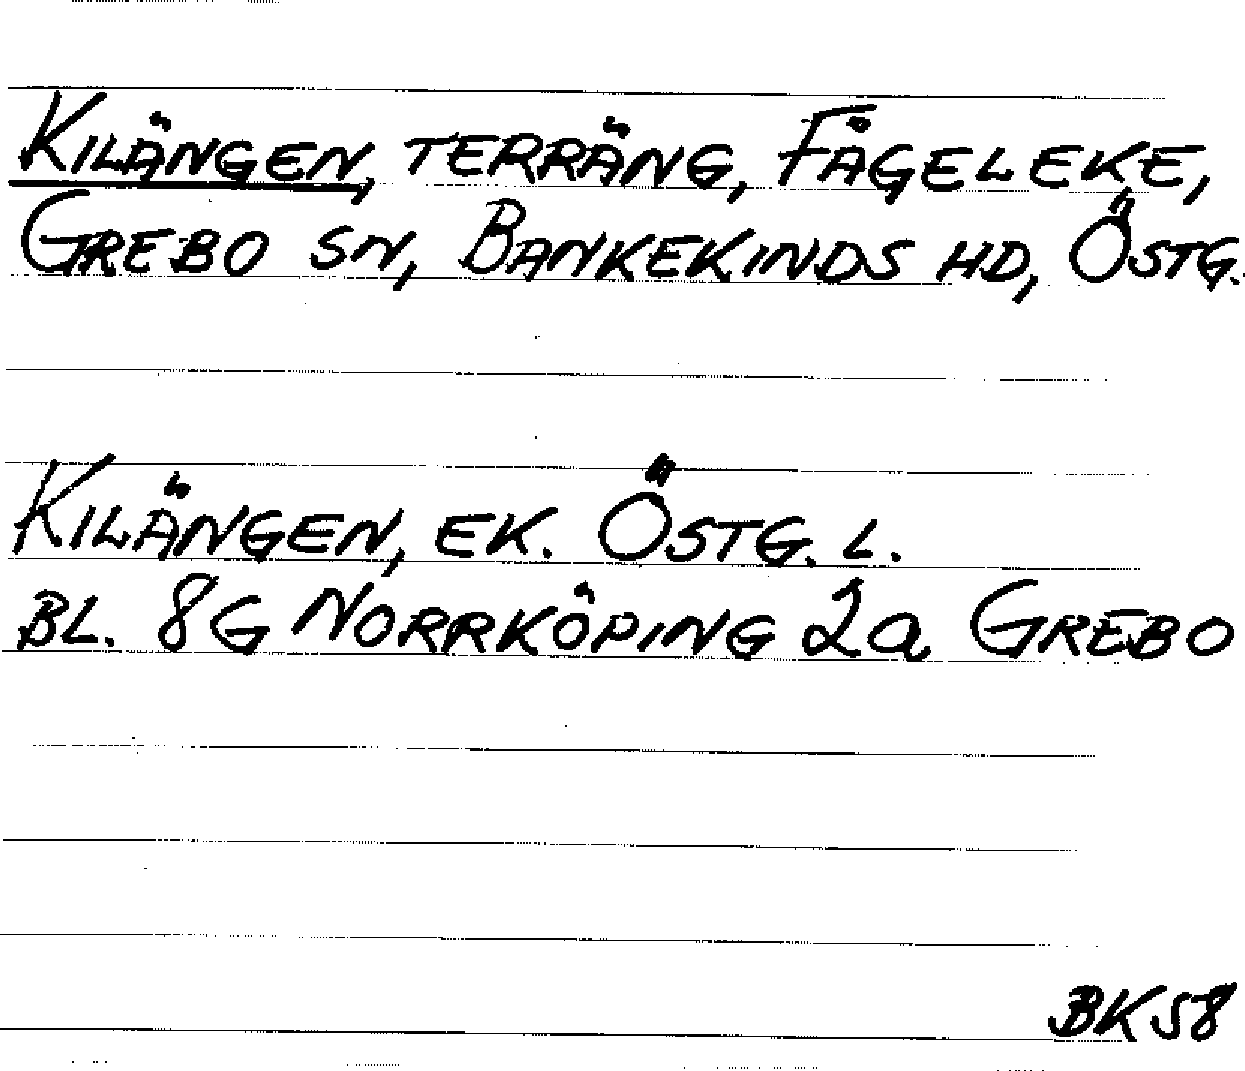 Kilängen, terräng, Fågeleke,
Grebo sn, Bankekinds hd, Östg.
Kilängen, ek. Östg. l.
bl. 8G Norrköping 2a Grebo
BK58